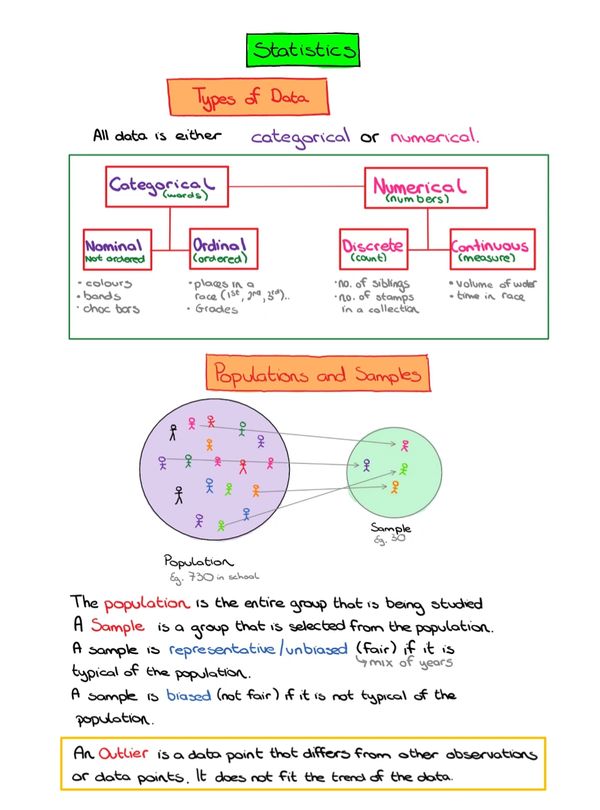 Statistics
Types of Data
All data is either categorical or numerical.
Categorical
(words)
Numerical
(numbers)
Nominal
Not ordered
Ordinal
(ordered)
Discrete
(count)
Continuous
(measure)
• colours
• bands
• choc bars
• places in a
race (1st, 2nd, 3rd)..
• Grades
• no. of siblings
• no. of stamps
in a collection
• volume of water
• time in race
Populations and Samples
Population
Eg. 730 in school
Sample
Eg. 30
The population is the entire group that is being studied
A Sample is a group that is selected from the population.
A sample is representative/unbiased (fair) if it is
mix of years
typical of the population.
A sample is biased (not fair) if it is not typical of the
population.
An Outlier is a data point that differs from other observations
or data points. It does not fit the trend of the data.